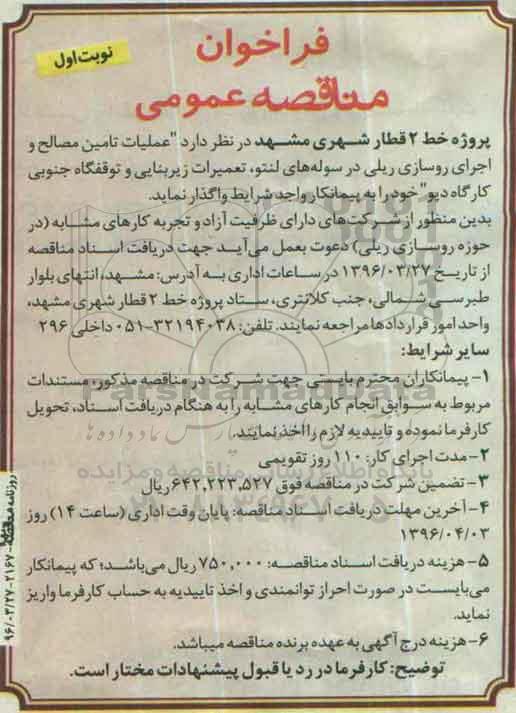 فراخوان
نوبت اول
مناقصه عمومی
پروژه خط ۲ قطار شهری مشهد در نظر دارد "عملیات تامین مصالح و
اجرای روسازی ریلی در سوله‌های لنتو، تعمیرات زیربنایی و توقفگاه جنوبی
کارگاه دپو" خود را به پیمانکار واجد شرایط واگذار نماید.
بدین منظور از شرکت‌های دارای ظرفیت آزاد و تجربه کارهای مشابه (در
حوزه روسازی ریلی) دعوت بعمل می‌آید جهت دریافت اسناد مناقصه
از تاریخ ۱۳۹۶/۰۳/۲۷ در ساعات اداری به آدرس: مشهد، انتهای بلوار
طبرسی شمالی، جنب کلانتری، ستاد پروژه خط ۲ قطار شهری مشهد،
واحد امور قراردادها مراجعه نمایند. تلفن: ۳۲۱۹۴۰۳۸-۰۵۱ داخلی ۲۹۶
سایر شرایط:
۱- پیمانکاران محترم بایستی جهت شرکت در مناقصه مذکور، مستندات
مربوط به سوابق انجام کارهای مشابه را به هنگام دریافت اسناد، تحویل
کارفرما نموده و تاییدیه لازم را اخذ نمایند.
۲- مدت اجرای کار: ۱۱۰ روز تقویمی
۳- تضمین شرکت در مناقصه فوق ۶۴۲,۲۲۳,۵۲۷ ریال
۴- آخرین مهلت دریافت اسناد مناقصه: پایان وقت اداری (ساعت ۱۴) روز
۱۳۹۶/۰۴/۰۳
۵- هزینه دریافت اسناد مناقصه: ۷۵۰,۰۰۰ ریال می‌باشد؛ که پیمانکار
می‌بایست در صورت احراز توانمندی و اخذ تاییدیه به حساب کارفرما واریز
نماید.
۶- هزینه درج آگهی به عهده برنده مناقصه میباشد.
توضیح: کارفرما در رد یا قبول پیشنهادات مختار است.
ParsNamadData
پایگاه اطلاع رسانی مناقصه و مزایده
۹۶/۰۳/۲۷-۲۱۶۷